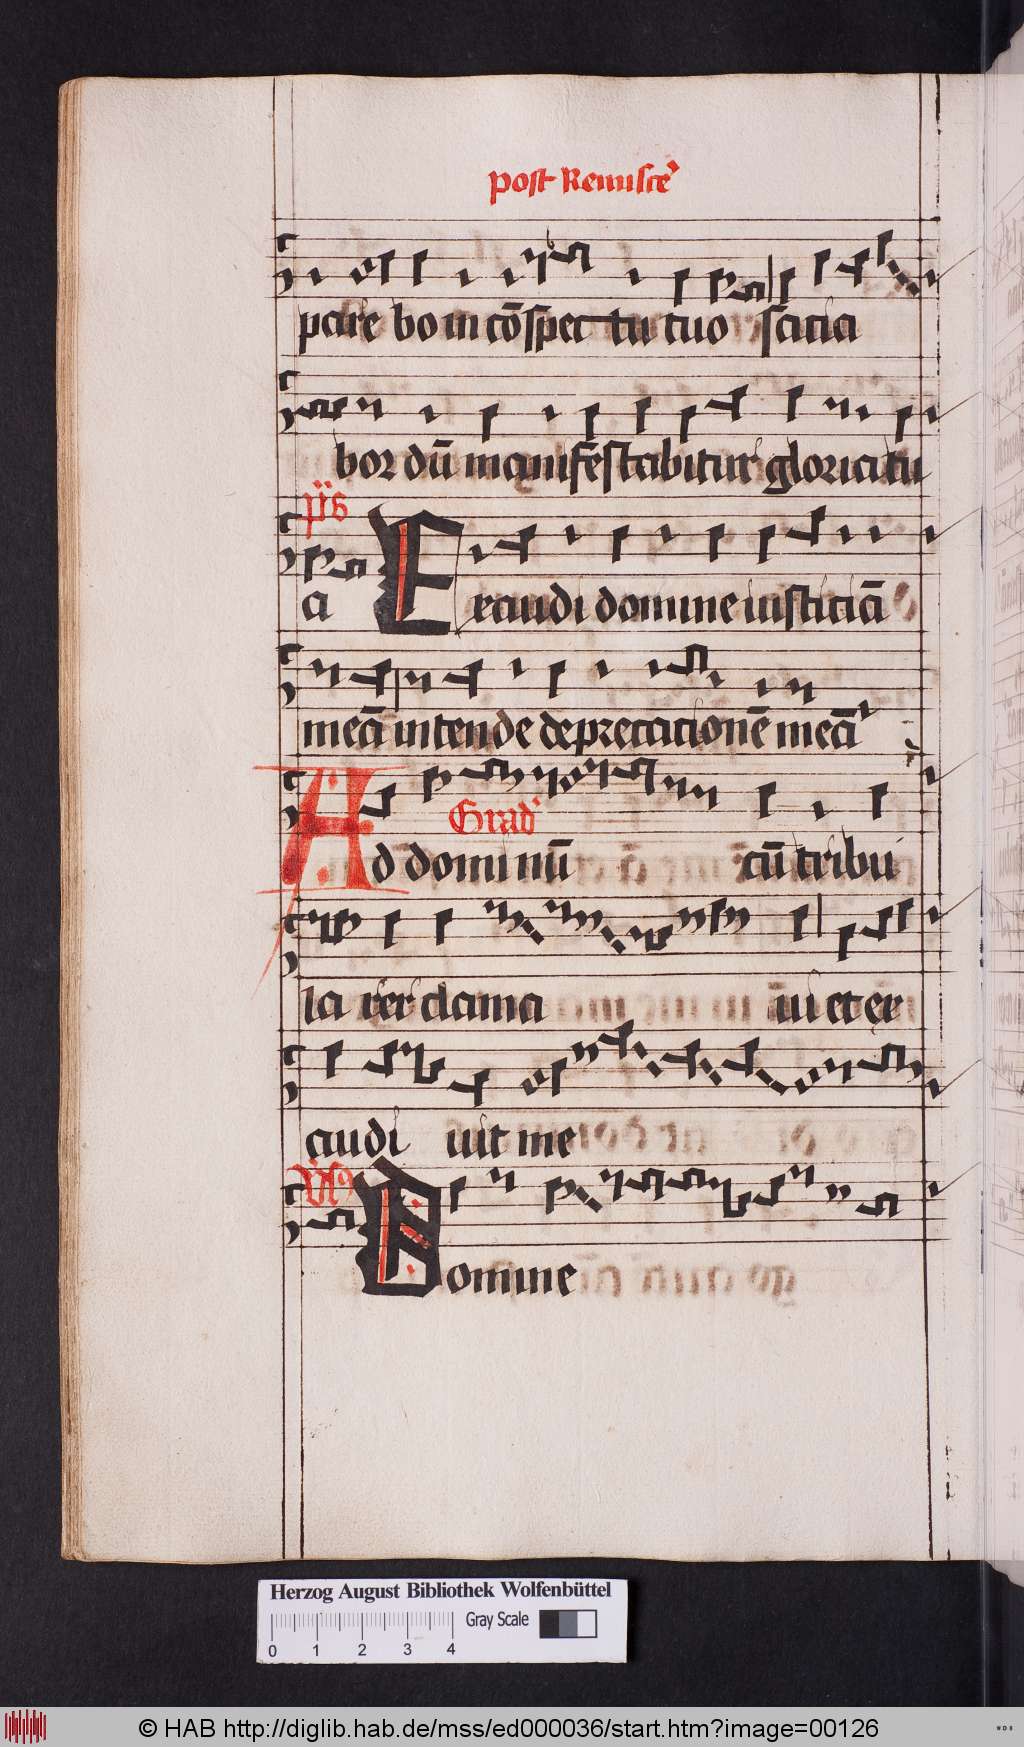 post Reminisce͛
pare bo in cōspec tu tuo sacia
bor dū manifestabitur gloria tu
ps
a Exaudi domine iusticiā
meā intende deprecacionē meā
Grad͛
Ad dominū cū tribu
la rer clama ui et ex
audi uit me
Domine
Herzog August Bibliothek Wolfenbüttel
Gray Scale
0 1 2 3 4
© HAB http://diglib.hab.de/mss/ed000036/start.htm?image=00126